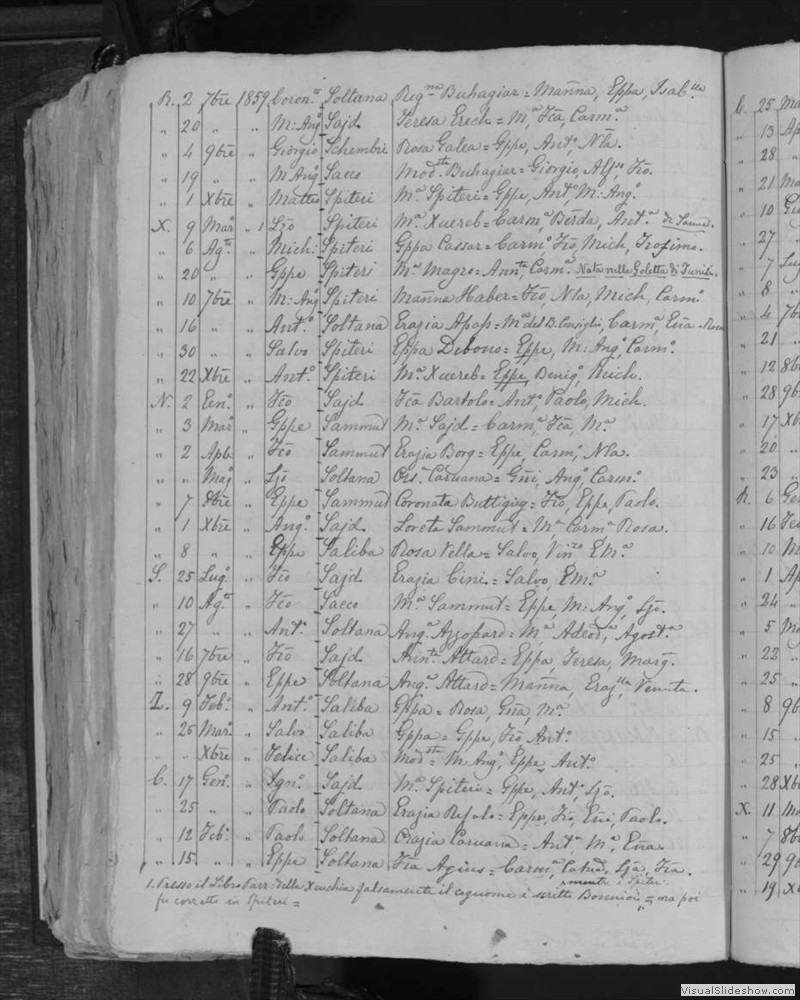 R. 2 7bre 1859 Coron.ta Soltana Reg.na Buhagiar = Mañna, Eppa, Isab.lla
" 20 " " M: Ang.a Sajd Teresa Erech = M.a, Fča, Carm.a
" 4 9bre " Giorgio Schembri Rosa Galea = Gppe, Ant.o, Nla.
" 19 " " M Ang.o Sacco Mod.sta Buhagiar = Giorgio, Alf.o, Fčo.
" 1 Xbre " Matteo Spiteri M.a Spiteri = Gppe, Ant.o, M: Ang.o
X. 9 Mar.o " 1 Ljo Spiteri M.a Xuereb = Carm.a, Ant.a
" 6 Ag.to " Mich: Spiteri Gppa Cassar = Carm.o, Fčo, Mich, Trofimo.
" 20 " " Gppe Spiteri M.a Magro = Ann.ta, Carm.a Nata nella Goletta di Tunisi.
" 10 7bre " M: Ang.o Spiteri Mañna Haber = Fčo, Nla, Mich, Carm.o
" 16 " " Ant.o Soltana Erazia Apap = M.a del B. Consiglio, Carm.a, Eña = Rosa
" 30 " " Salvo Spiteri Eppa Debono = Eppe, M: Ang.o, Carm.o
" 22 Xbre " Ant.o Spiteri M.a Xuereb = Eppe, Benig.o, Mich.
N. 2 Een.o " Fčo Sajd Fča Bartolo = Ant.o, Paolo, Mich.
" 3 Mar.o " Gppe Sammut M.a Sajd = Carm.a, Fča, M.a
" 2 Apl. " Fčo Sammut Erazia Borg = Eppe, Carm.o, Nla.
" " Mag. " Ljo Soltana Ors.a Caruana = Gñi, Ang.o, Carm.o
" 7 8bre " Eppe Sammut Coronata Buttigieg = Fčo, Eppe, Paolo.
" 1 Xbre " Ang.o Sajd Loreta Sammut = M.a, Carm.a Rosa.
" 8 " " Eppe Saliba Rosa Vella = Salvo, Vin.zo, EM.a
S. 25 Lug.o " Fčo Sajd Erazia Cini = Salvo, EM.a
" 10 Ag.to " Fčo Sacco M.a Sammut = Eppe, M: Ang.o, Ljo.
" 27 " " Ant.o Soltana Ang.a Azzopard = M.a Adeod.a, Agost.a
" 16 7bre " Fčo Sajd Ann.ta Attard = Eppa, Teresa, Marg.
" 28 9bre " Eppe Soltana Ang.a Attard = Mañna, Eraz.lla, Venuta.
Z. 9 Feb.o " Ant.o Saliba Gppa = Rosa, Gña, M.a
" 25 Mar.o " Salvo Saliba Gppa = Gppe, Fčo, Ant.o
" " Xbre " Felice Saliba Mod.sta = M: Ang.o, Eppe, Ant.o
C. 17 Gen.o " Ign.o Sajd M.a Spiteri = Gppe, Ant.o, Ljo.
" 25 " " Paolo Soltana Erazia Refalo = Eppe, Fčo, Eñi, Paolo.
" 12 Feb.o " Paolo Soltana Orazia Caruana = Ant.a M.a, Eña.
" 15 " " Eppe Soltana Fča Agius = Carm.a, Cat.na, Lja, Fča.
1. Presso il Libro Parr: della Xeuchia falsamente il cognome è scritto = ma poi
fu corretto in Spiteri =
C. 25 Ma
" 13 Ap
" 28 "
" 21 Ma
" 10 Giu
" 27 "
" 7 Lug
" 8 "
" 4 7b
" 21 "
" 12 8b
" 28 9b
" 17 Xb
" 20 "
" 23 "
R. 6 Ge
" 16 Feb
" 10 M
" 1 Ap
" 24 "
" 5 Ma
" 22 "
" 25 "
" 8 9b
" 15 "
" 25 "
" 28 Xb
X. 11 Ma
" 7 8b
" 29 9b
" 19 Xb
VisualSlideshow.com